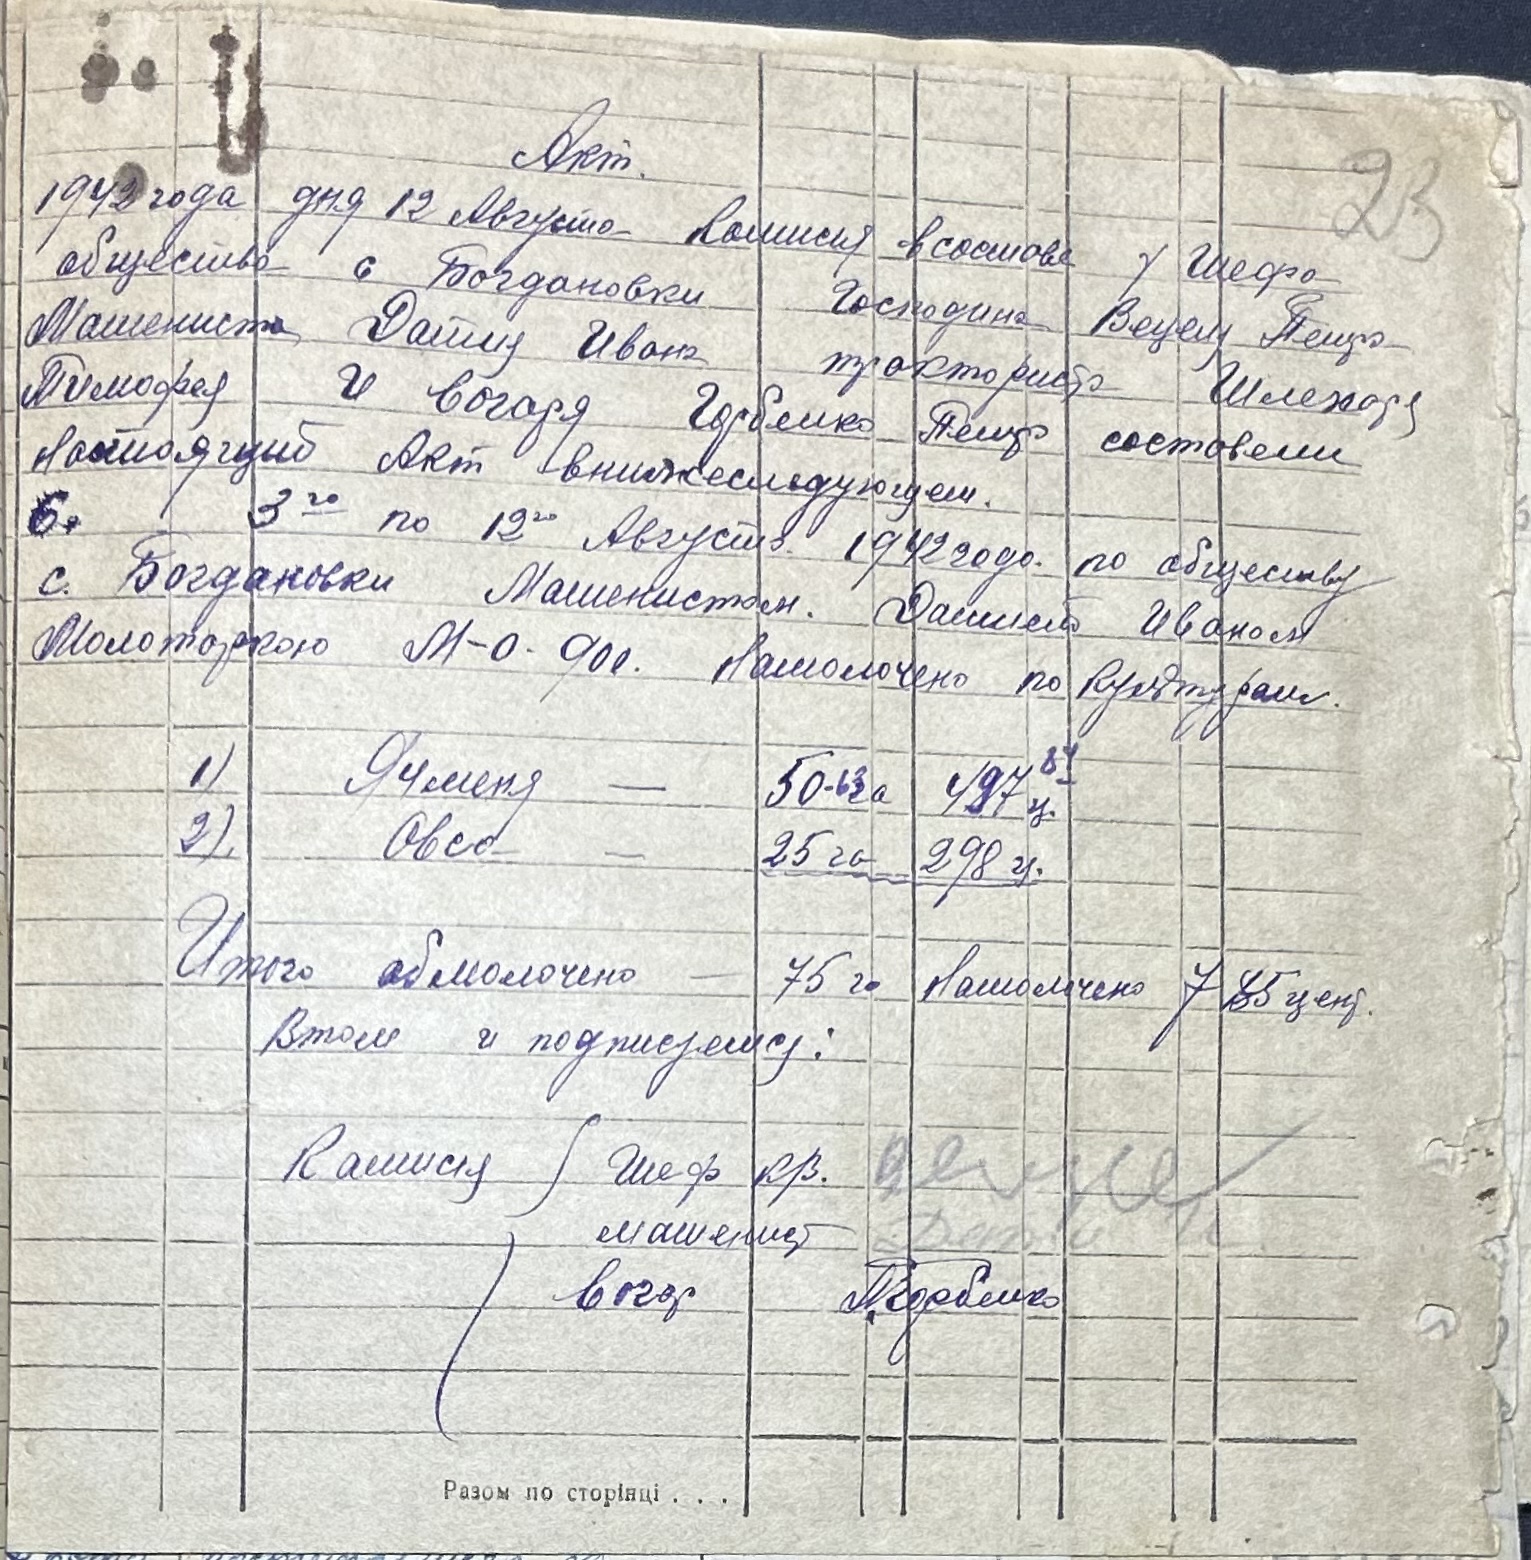 23
Акт.
1942 года дня 12 Августа Комисия в составе у Шефа
общества с Богдановки Господина Вецель Петро
Машениста Дация Ивана тракториста Шлехаря
Тимофея И вогаря Горбенко Петро составели
Настоящий Акт внижеследующем.
С. 3го по 12го Августа. 1942 года. по обществу
с. Богдановки Машенистом. Дацием Иваном
Молотаркою М-О-900. Намолочено по Культурам.
1) Ячменя — 50-63 га 497 84 ц.
2). Овса — 25 га 298 ц.
Итого обмолочено — 75 га Намолочено 785 цент.
Втом и подписуемся:
Камисия Шеф кв.
машенист
вогар П.Горбенко
Разом по сторінці . . .